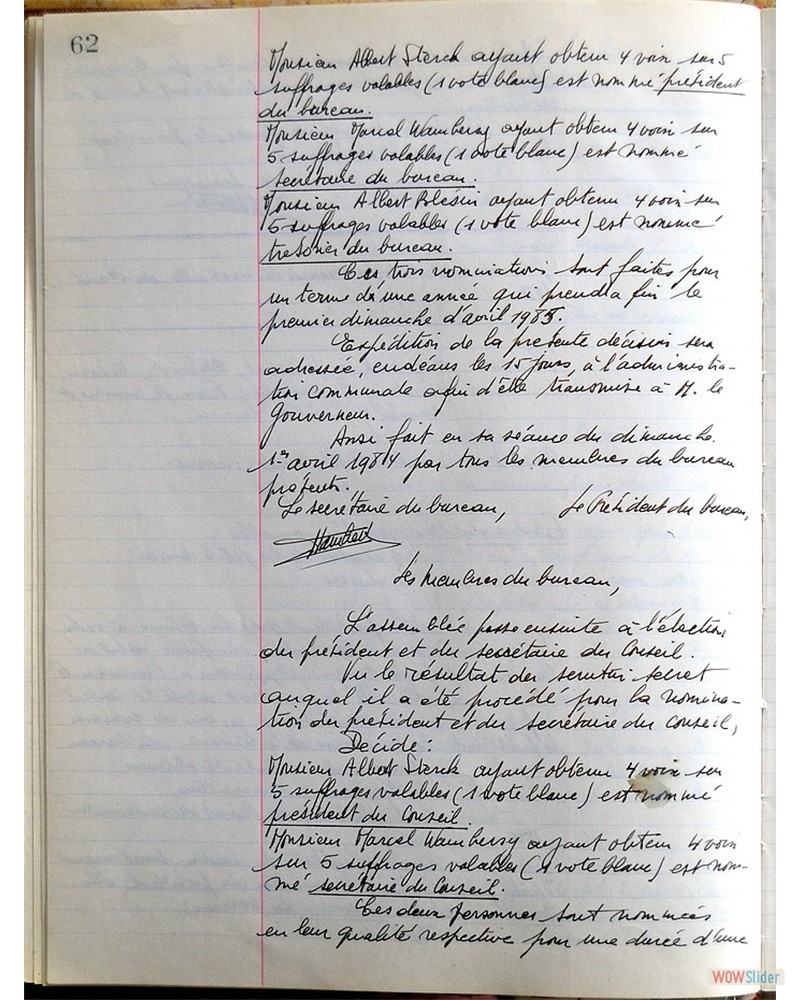 62
Monsieur Albert Sterck ayant obtenu 4 voix sur 5
suffrages valables (1 vote blanc) est nommé président
du bureau.
Monsieur Marcel Wambersy ayant obtenu 4 voix sur
5 suffrages valables (1 vote blanc) est nommé
secrétaire du bureau.
Monsieur Albert Blésin ayant obtenu 4 voix sur
5 suffrages valables (1 vote blanc) est nommé
trésorier du bureau.
Ces trois nominations sont faites pour
un terme d'une année qui prendra fin le
premier dimanche d'avril 1985.
Expédition de la présente décision sera
adressée, endéans les 15 jours, à l'administra-
tion communale afin d'être transmise à M. le
Gouverneur.
Ainsi fait en sa séance du dimanche
1er avril 1984 par tous les membres du bureau
présents.
Le secrétaire du bureau, Le Président du bureau,
Les membres du bureau,
L'assemblée passe ensuite à l'élection
du président et du secrétaire du Conseil.
Vu le résultat du scrutin secret
auquel il a été procédé pour la nomina-
tion du président et du secrétaire du Conseil,
Décide :
Monsieur Albert Sterck ayant obtenu 4 voix sur
5 suffrages valables (1 vote blanc) est nommé
président du Conseil.
Monsieur Marcel Wambersy ayant obtenu 4 voix
sur 5 suffrages valables (1 vote blanc) est nom-
mé secrétaire du Conseil.
Ces deux personnes sont nommées
en leur qualité respective pour une durée d'une
WOWSlider